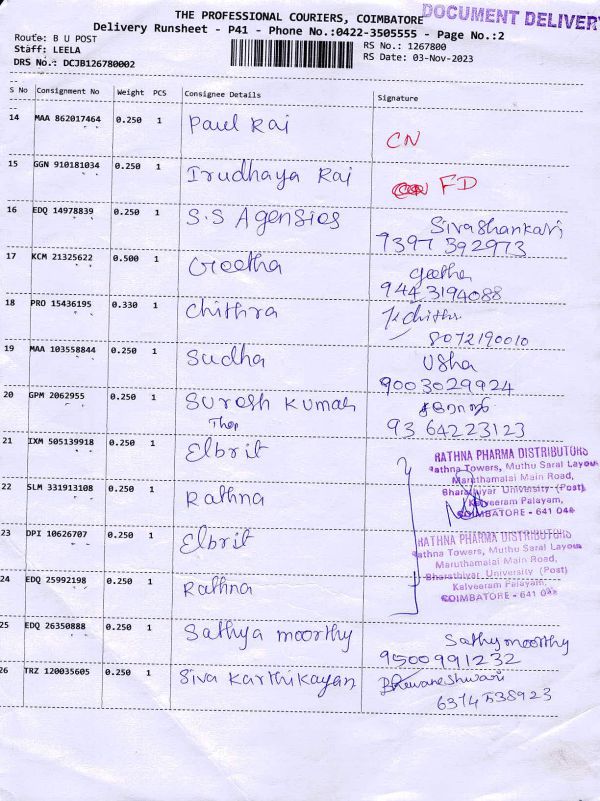 THE PROFESSIONAL COURIERS, COIMBATORE
DOCUMENT DELIVERY
Delivery Runsheet - P41 - Phone No.:0422-3505555 - Page No.:2
Route: B U POST
RS No.: 1267800
Staff: LEELA
RS Date: 03-Nov-2023
DRS No.: DCJB126780002
S No Consignment No Weight PCS Consignee Details Signature
14 MAA 862017464 0.250 1 Paul Raj CN
15 GGN 910181034 0.250 1 Irudhaya Raj FD
16 EDQ 14978839 0.250 1 S.S Agensies Sivashankari
9397392973
17 KCM 21325622 0.500 1 Geetha geetha
9443194088
18 PRO 15436195 0.330 1 Chithra
8072190010
19 MAA 103558844 0.250 1 Sudha Usha
9003029924
20 GPM 2062955 0.250 1 Suresh Kumar சரோஜ்
Thop 9364223123
21 IXM 505139918 0.250 1 Elbrit
RATHNA PHARMA DISTRIBUTORS
Rathna Towers, Muthu Saral Layou
Maruthamalai Main Road,
22 SLM 331913108 0.250 1 Rathna
Bharathiyar University (Post)
Kalveeram Palayam,
COIMBATORE - 641 046
23 DPI 10626707 0.250 1 Elbrit
RATHNA PHARMA DISTRIBUTORS
Rathna Towers, Muthu Saral Layou
Maruthamalai Main Road,
24 EDQ 25992198 0.250 1 Rathna
Bharathiyar University (Post)
Kalveeram Palayam,
COIMBATORE - 641 046
25 EDQ 26350888 0.250 1 Sathya moorthy Sathy moorthy
9500991232
26 TRZ 120035605 0.250 1 Siva Karthikayan
6374538923